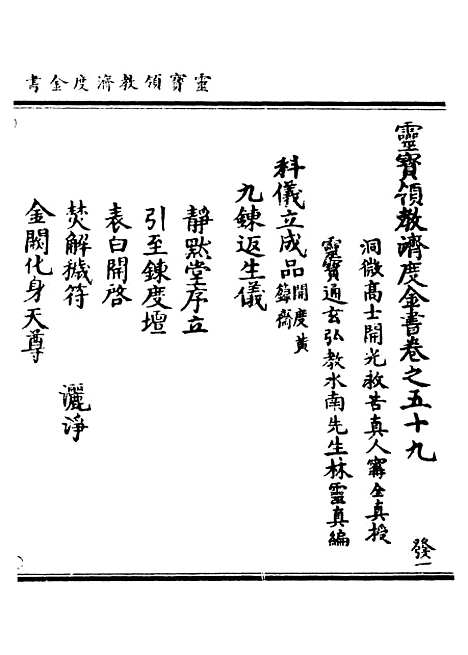 靈寳領教濟度金書
靈寳領教濟度金書卷之五十九
發一
洞微髙士開光救苦真人寗全真授
靈寳通玄弘教水南先生林靈真編
科儀立成品開度黃籙齋
九鍊返生儀
靜黙堂序立
引至鍊度壇
表白開啓
焚解穢符
灑淨
金闕化身天尊